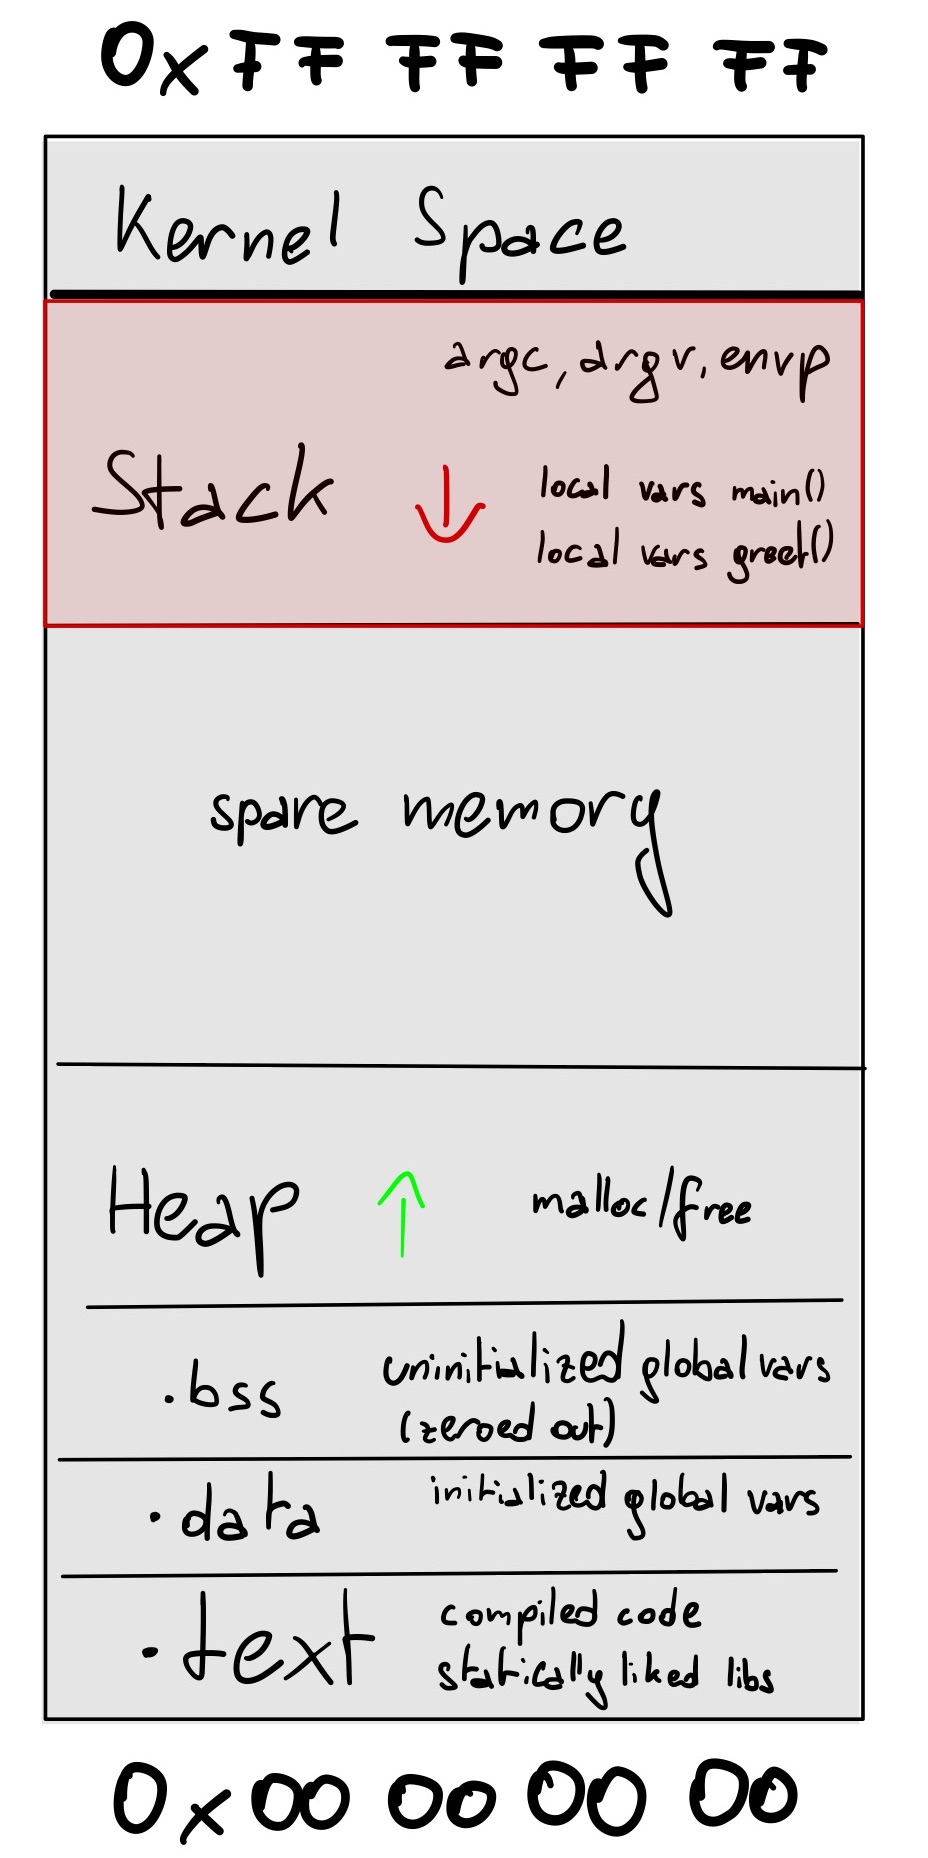 0x FF FF FF FF
Kernel Space
argc, argv, envp
Stack
local vars main()
local vars greet()
spare memory
Heap
malloc/free
.bss
uninitialized global vars
(zeroed out)
.data
initialized global vars
.text
compiled code
statically liked libs
0x 00 00 00 00